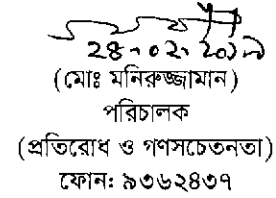 ২৪-০২-২০১৯
(মোঃ মনিরুজ্জামান)
পরিচালক
(প্রতিরোধ ও গণসচেতনতা)
ফোন: ৯৩৬২৪৩৭